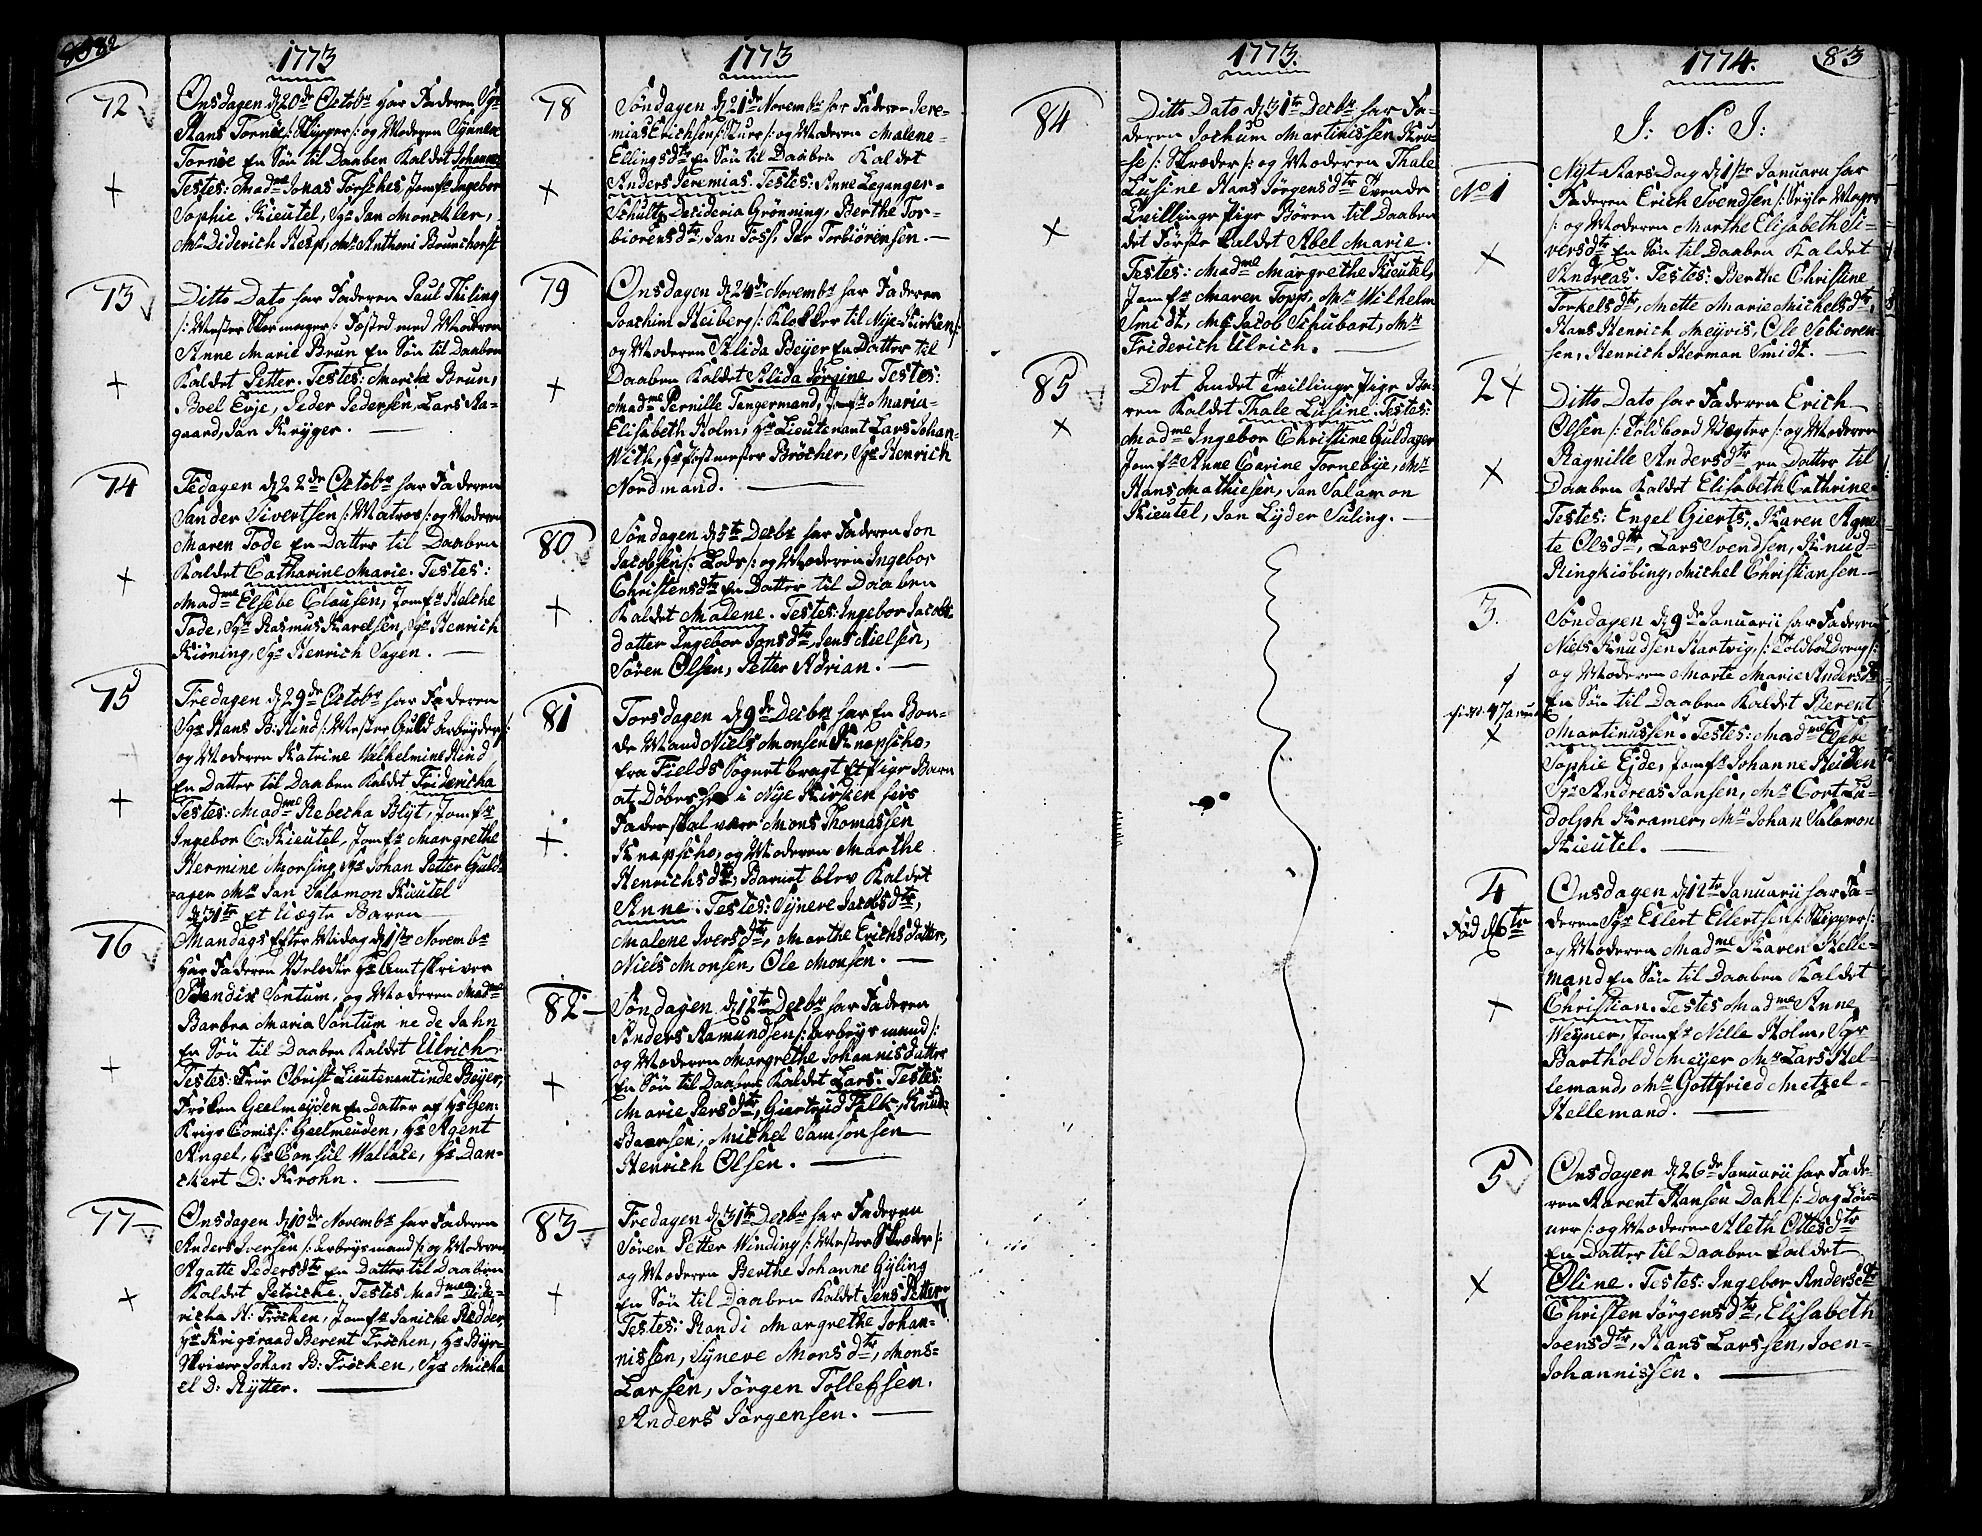 82
1773
72
Onsdagen d. 20de Octobr har Faderen Sgr
Hans Tornøe /: Skipper :/ og Moderen Synnen
Tornøe En Søn til Daaben Kaldet Johannes
Testes: Madme Jonas Torsches, Jomfr Ingebor
Sophie Kieutel, Sgr Jan Monckler,
Mr Diderich Hesp, Mr Anthoni Brunchorst
73
Ditto Dato har Faderen Paul Thiling
/: Mester Skomager :/ Fosted med Moderen
Anne Marie Brun En Søn til Daaben
Kaldet Petter. Testes: Marichen Brun,
Boel Evje, Peder Pedersen, Lars Aa-
gaard, Jan Krÿger.
74
Fredagen d. 22de Octobr har Faderen
Sander Sivertsen /: Matros :/ og Moderen
Maren Tode En Datter til Daaben
Kaldet Catharine Marie. Testes:
Madme Elsebe Clausen, Jomfr Helche
Tode, Sgr Rasmus Karelsen, Sgr Henrich
Kiöning, Sgr Henrich Sagen.
75
Fredagen d. 29de Octobr har Faderen
Sgr Hans B: Hind /: Mester Guld Arbeyder :/
og Moderen Katrine Wilhelmine Hind
En Datter til Daaben Kaldet Fridericha
Testes: Madme Rebecha Blÿt, Jomfr
Ingebor C: Kieutel, Jomfr Margrethe
Hermine Morsing, Sgr Johan Petter Guld-
ager Mr Jan Salamon Kieutel
d. 31te Et Uægte Baren
76
Mandags Efter Midag d. 1ste Novembr
Har Faderen Velædle Hr Amtskriver
Bendix Sontum, og Moderen Madme
Barbra Maria Sontum ne de Jahn
En Søn til Daaben Kaldet Ulrich
Testes: Frue Obrist Lieutenantinde Beÿer,
Frøken Geelmeÿden En Datter af Hr Gen:
Krigs Comiss: Geelmeuden, Hr Agent
Angel, Hr Consul Wallace, Hr Dan-
ckert D: Krohn.
77
Onsdagen d. 10de Novembr har Faderen
Anders Iversen /: Arbeysmand :/ og Moderen
Agatte Pedersdtr En Datter til Daaben
Kaldet Petriche. Testes Madme Dide-
richa N: Fröchen, Jomfr Janiche Rödder,
Hr Krigsraad Berent Fröchen, Hr Bÿe-
Skriver Johan B: Fröchen, Sgr Micha
el D: Rÿtter.
1773
78
Söndagen d. 21de Novembr har Faderen Jere-
mias Erichsen /: Kurr :/ og Moderen Malene
Ellingsdtr En Søn til Daaben Kaldet
Anders Jeremias. Testes: Anne Leganger
Schultz, Desideria Grönning, Berthe Tor-
biorensdtr, Jan Foss, Per Torbiörensen.
79
Onsdagen d. 24de Novembr har Faderen
Joachim Heiberg /: Klokker til Nye Kirken :/
og Moderen Alida Beÿer En Datter til
Daaben Kaldet Alida Jørgine. Testes:
Madme Pernille Tangermand, Jomfr Maria
Elisabeth Holm, Hr Lieutenant Lars Johan
With, Hr Postmester Bröcher, Sgr Henrich
Nordmand.
80
Söndagen d. 5te Decbr har Faderen Jon
Jacobsen /: Lods :/ og Moderen Ingebor
Christensdtr En Datter til Daaben
Kaldet Malene. Testes: Ingebor Jacobs
datter Ingebor Jansdtr, Jens Nielsen,
Sören Olsen, Petter Adrian.
81
Torsdagen d. 9de Decbr har En Bon-
de Mand Niels Monsen Knapscho,
fra Fields Sognet bragt Et Pige Barn
at Döbes her i Nye Kirken hvis
Fader skal være Mons Thomassen
Knapscho, og Moderen Marthe
Henrichsdtr, Barnet blev Kaldet
Anne. Testes: Synere Jacobsdtr,
Malene Iversdtr, Marthe Erichsdatter,
Niels Monsen, Ole Monsen.
82
Söndagen d. 12te Decbr har Faderen
Anders Aamundsen /: Arbeysmand :/
og Moderen Margrethe Johannisdatter
En Søn til Daaben Kaldet Lars: Testes:
Marie Persdtr, Giertrud Falk, Knud
Baarsen, Michel Samsonsen
Henrich Olsen.
83
Fredagen d. 31te Decbr har Faderen
Sören Petter Winding /: Mester Skræder :/
og Moderen Berthe Johanne Gÿling
En Søn til Daaben Kaldet Jens Petter
Testes: Randi Margrethe Johan-
nissen, Sÿnere Monsdtr, Mons
Larsen, Jörgen Tollefsen.
Anders Jörgensen.
1773.
84
Ditto Dato d. 31te Decbr har Fa-
deren Jochum Martinissen Kro-
se /: Skræder :/ og Moderen Thale
Lusine Hans Jörgensdtr Tvende
Tvillinge Pige Bören til Daaben
det Förste Kaldet Abel Marie.
Testes: Madme Margrethe Kieutel,
Jomfr Maren Topp, Mr Wilhelm
Smidt, Mr Jacob Schubart, Mr
Friderich Ulrich.
85
Det Andet Tvillinge Pige Ba-
ren Kaldet Thale Lusine. Testes:
Madme Ingebor Christine Guldager
Jomfr Anne Carine Tornebÿe, Mr
Hans Mathiesen, Jan Salamon
Kieutel, Jan Lÿder Suling.
1774.
83
J: N: J:
No 1
Nÿt Aars Dag d. 1ste Januarii har
Faderen Erich Svendsen /: Bryte Mager
:/ og Moderen Marthe Elisabeth Si-
versdtr En Søn til Daaben Kaldet
Andreas. Testes: Berthe Christine
Torkelsdtr, Mette Marie Michelsdtr,
Hans Henrich Meyvis, Ole Sebioren-
sen, Henrich Herman Smidt.
2
Ditto Dato har Faderen Erich
Olsen /: Toldbord Vægter :/ og Moderen
Ragnille Andersdtr en Datter til
Daaben Kaldet Elisabeth Cathrine
Testes: Engel Gierts, Karen Agne
te Olsdtr, Lars Svendsen, Knud
Ringkiöbing, Michel Christiansen
3.
Söndagen d. 9de Januarii har Faderen
Niels Knudsen Hartvig, /: Toldbod Dreng :/
og Moderen Marte Marie Andersdtr
En Søn til Daaben Kaldet Berent
Martinussen. Testes: Madme Elsebe
Sophie Eide, Jomfr Johanne Heiden
Sgr Andreas Jansen, Mr Cort Lu-
dolph Kramer, Mr Johan Salomon
Kieutel.
4
Fød d. 6te
Onsdagen d. 12te Januarii har Fa-
deren Sgr Eilert Eilertsen /: Skipper :/
og Moderen Madme Karen Helle-
mand En Søn til Daaben Kaldet
Christian. Testes Madme Anne
Weyner, Jomfr Nille Holm, Sgr
Barthold Meÿer Mr Lars Hel-
lemand, Mr Gottfried Metzel-
Hellemand.
5
Onsdagen d. 26de Januarii har Fade-
ren Aarent Hansen Dahl /: Dag Løn
ner :/ og Moderen Aleth Ottesdtr
En Datter til Daaben Kaldet
Oline. Testes: Ingebor Andersdtr
Christen Jörgensdtr, Elisabeth
Joensdtr, Hans Larssen, Joen-
Johannissen.